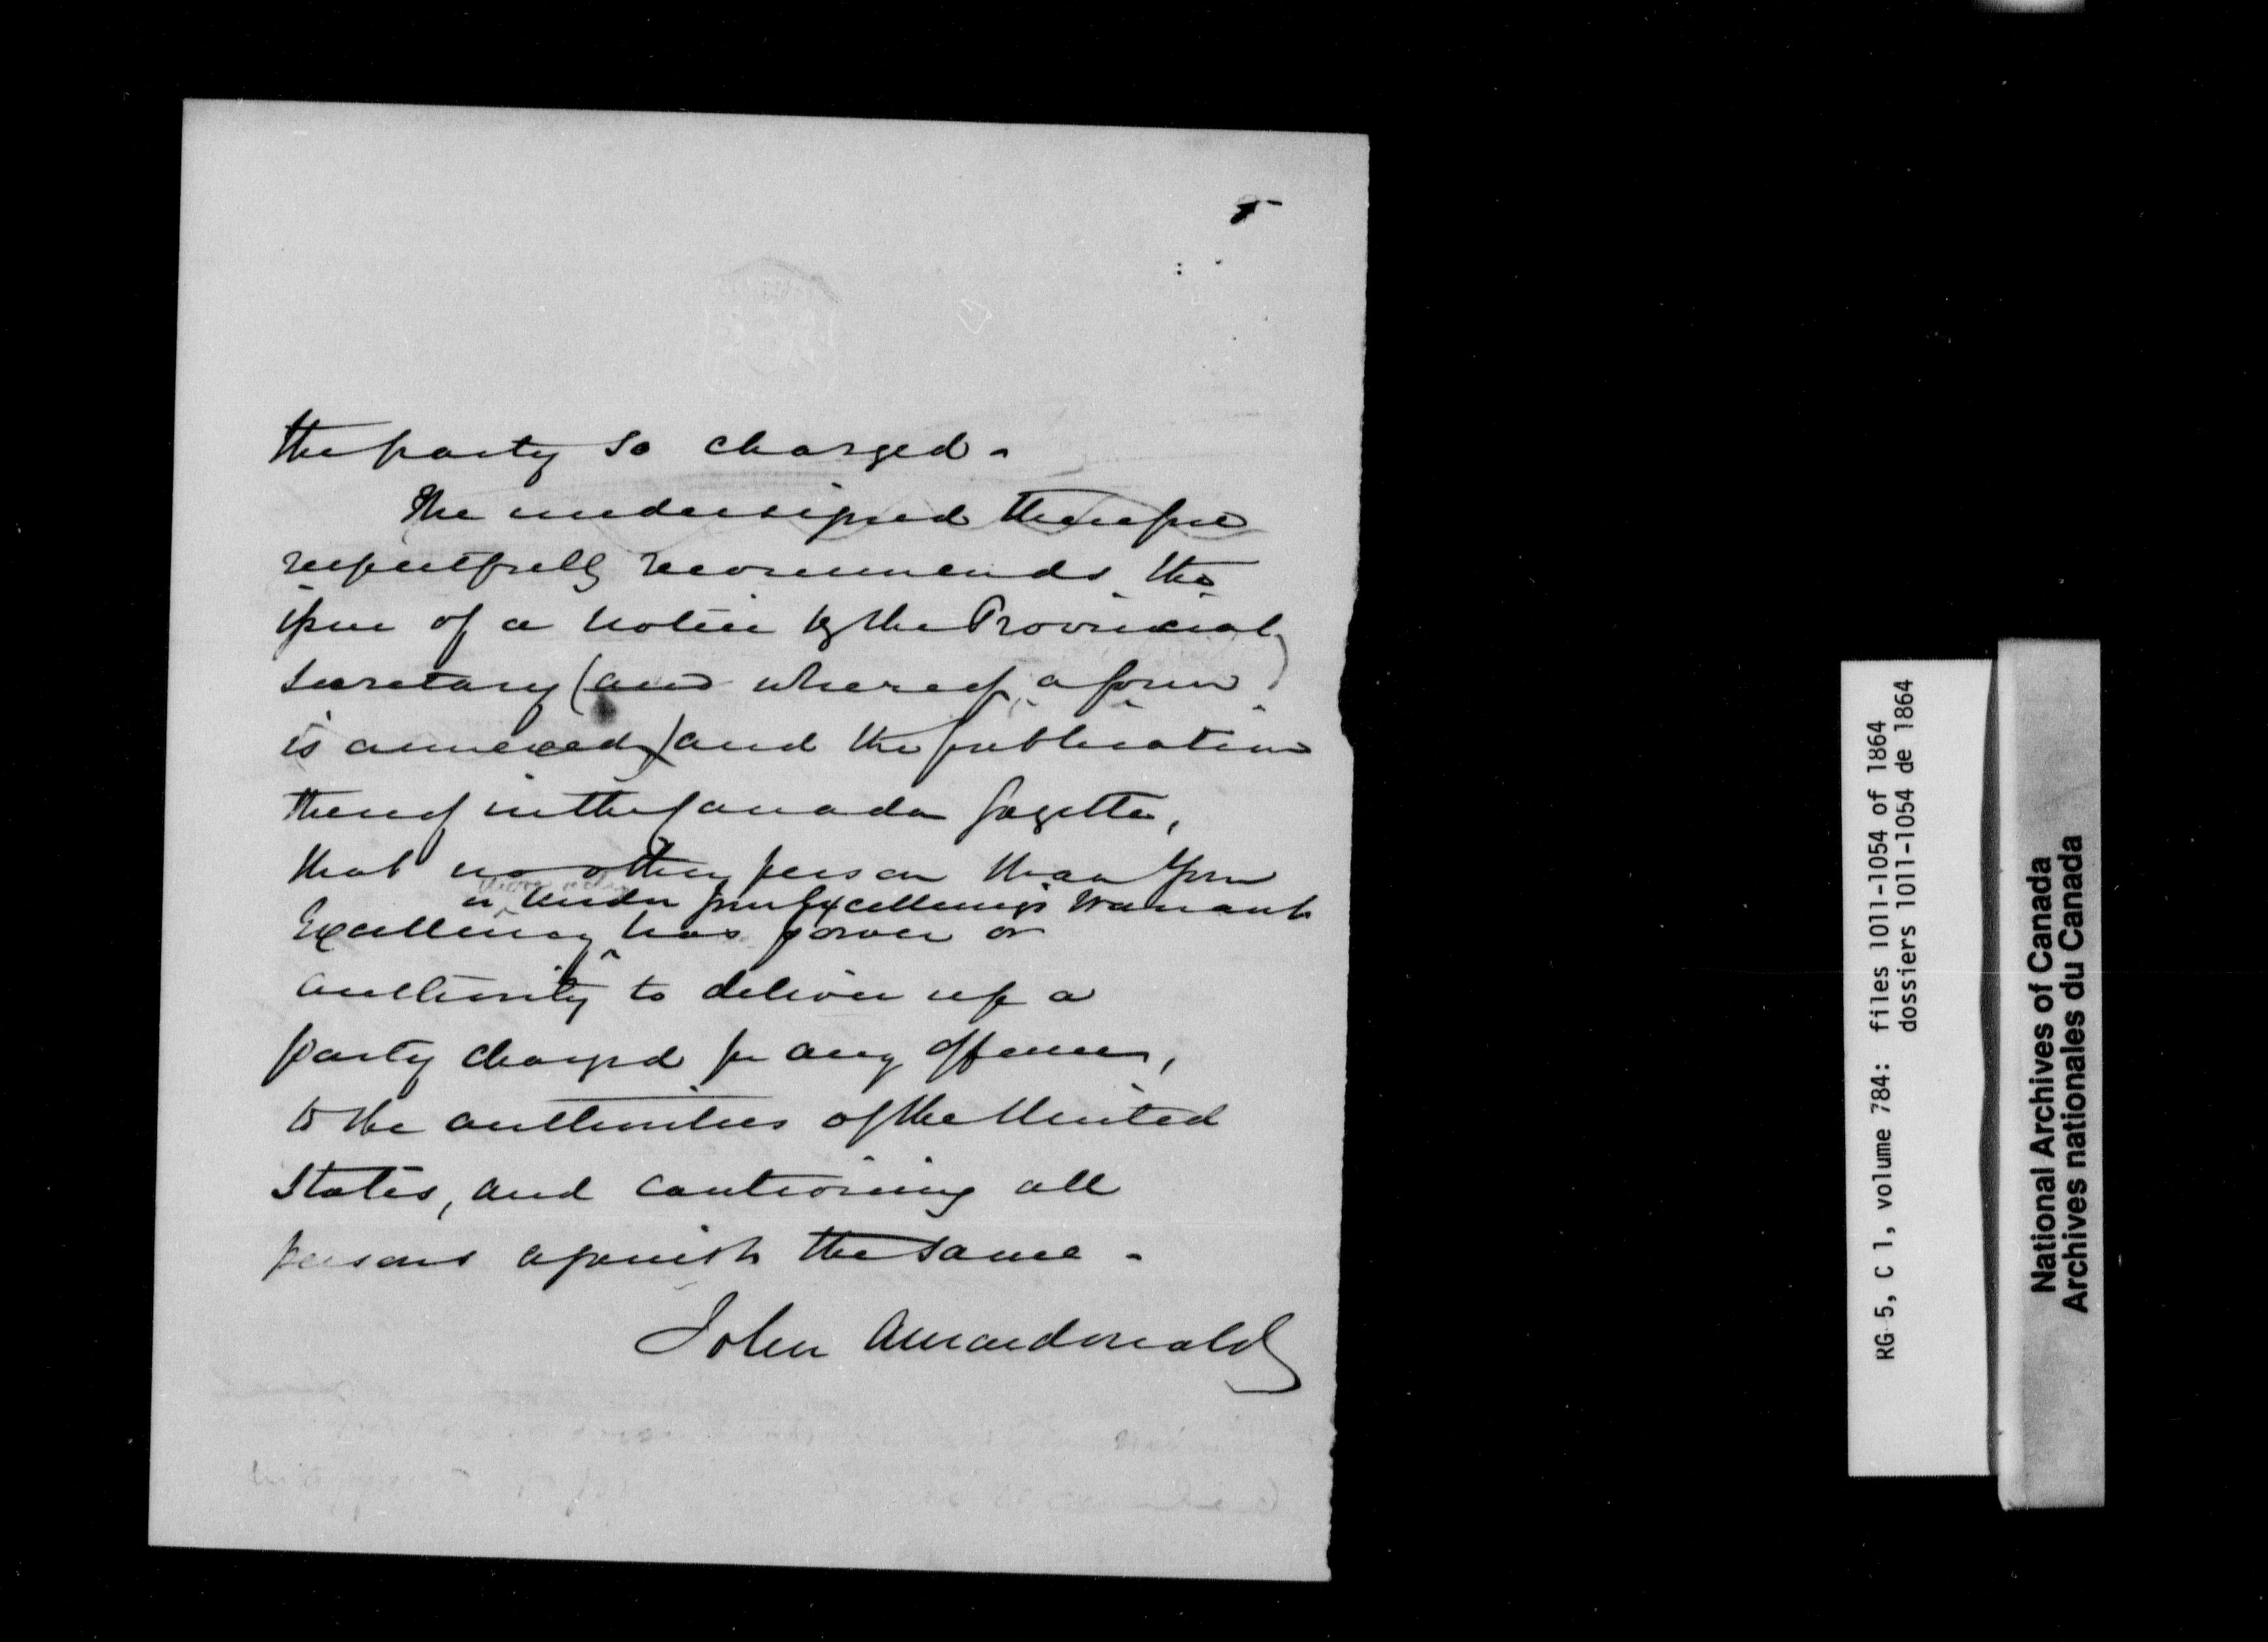 5
the party so charged.
The undersigned therefore
respectfully recommends the
issue of a notice by the Provincial
Secretary (and whereof a form
is annexed) and the publication
thereof in the Canada Gazette,
that no other person than Your
or under Your Excellency's Warrant
Excellency has power or
authority to deliver up a
party charged for any offence,
to the authorities of the United
States, and cautioning all
persons against the same.
John A Macdonald
RG 5, C 1, volume 784: files 1011-1054 of 1864
dossiers 1011-1054 de 1864
National Archives of Canada
Archives nationales du Canada